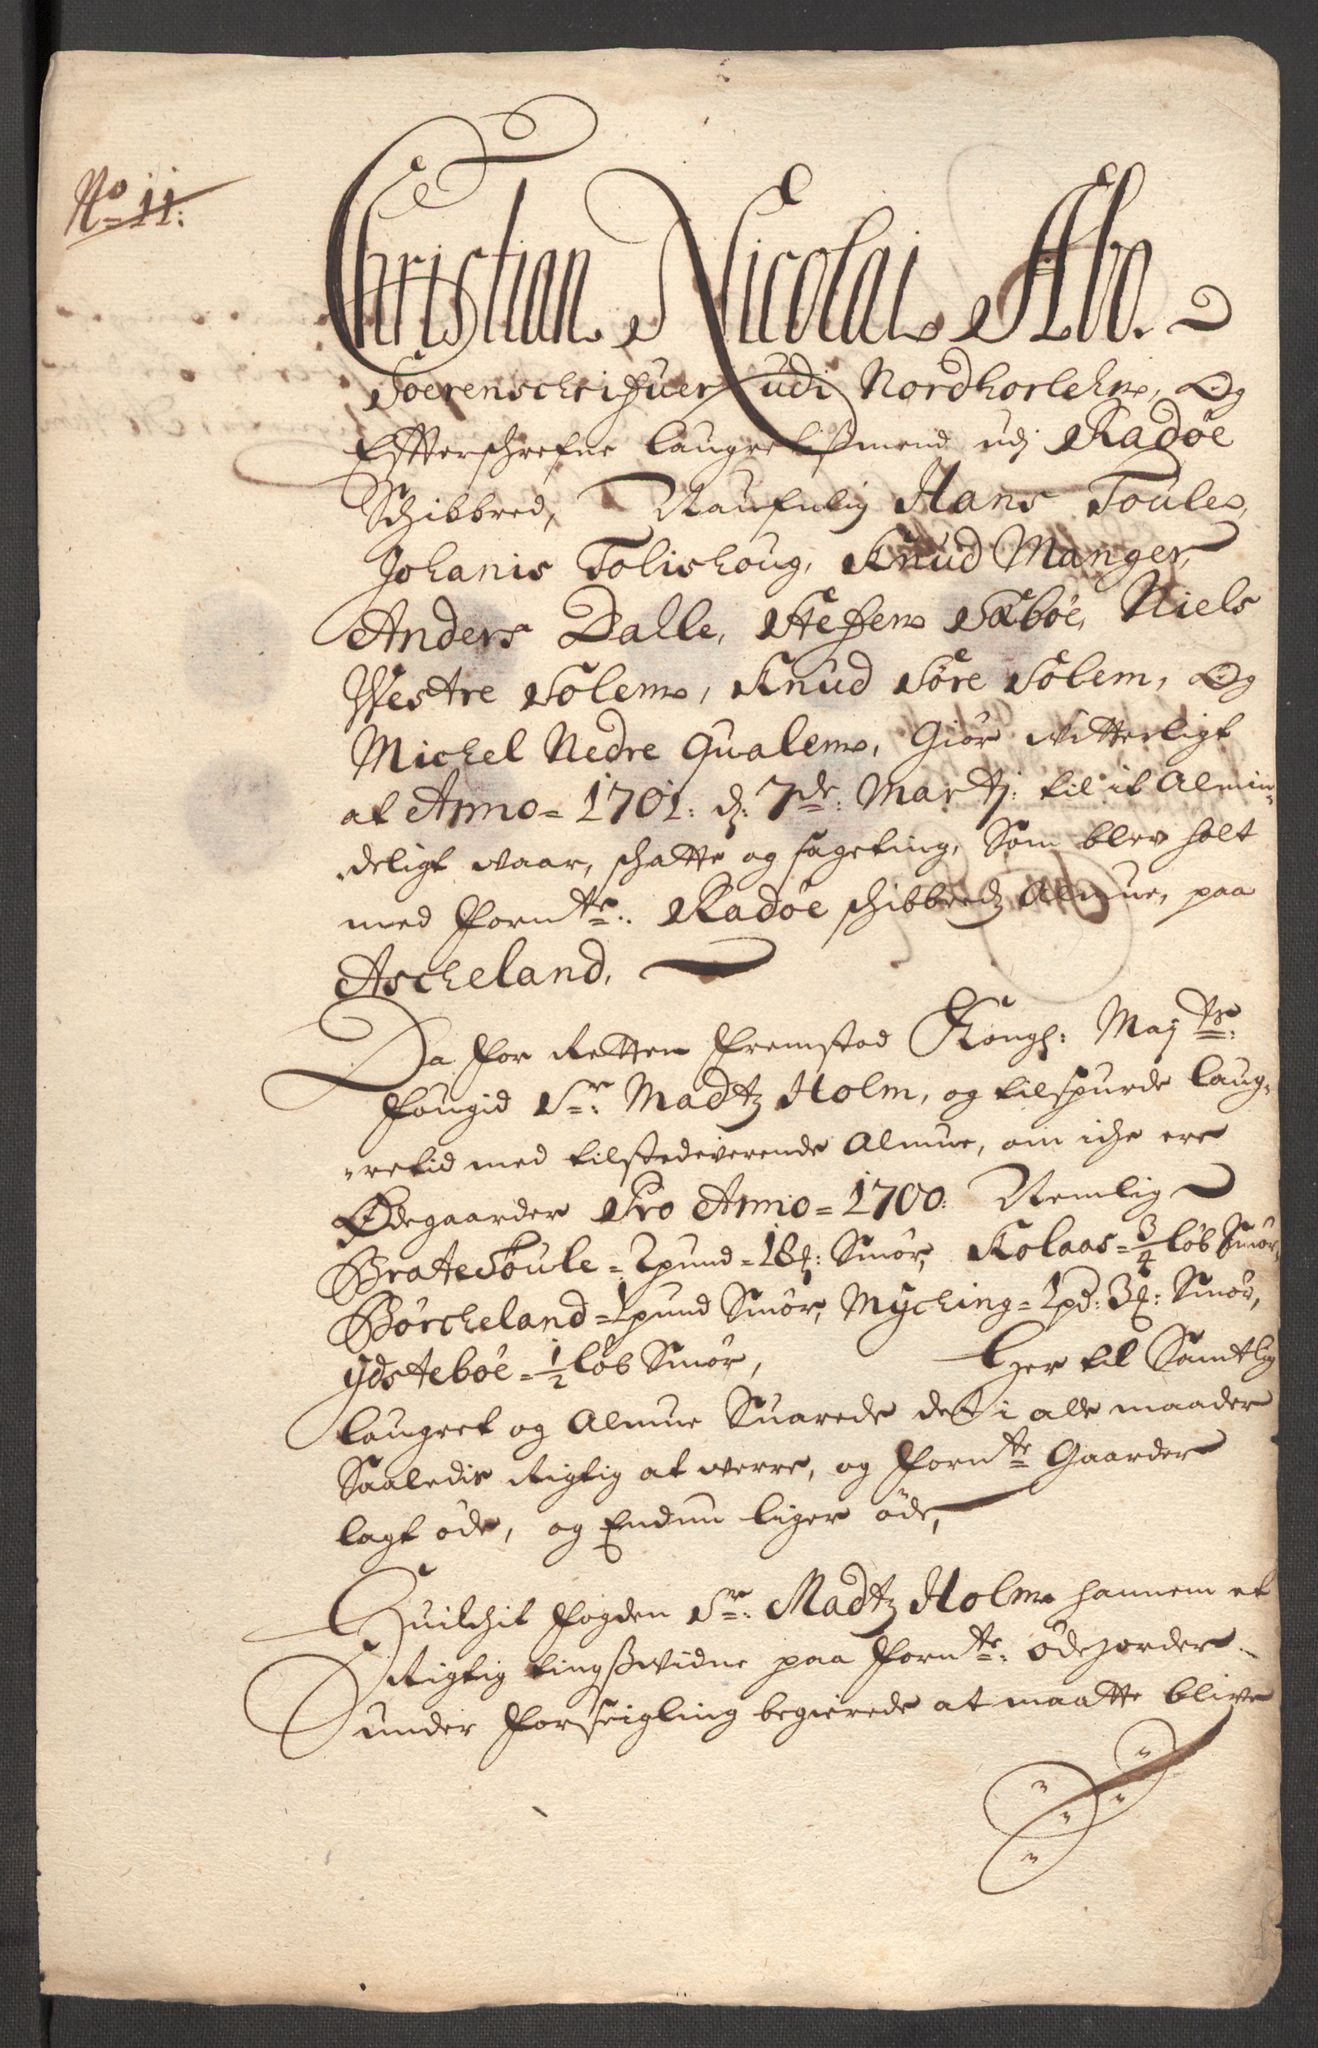 No 11:
Christian Nicolai Abo.
Soerenschrifuer udi Nordhorlehn, Og
Effterschrefne laugrettismend udj Radöe
Schibbred, Naufnlig Hans Toule,
Johanis Tolishoug, Knud Manger,
Anders Dalle, Steffen Sæböe, Niels
Westre Solem, Knud Söre Solem, Og
Michel Nedre Qualem, Giör Witterligt
at Anno = 1701: d: 7de: Martj: til it Almin-
deligt waar, schatte og sageting, Som blev holt
med fornte: Radöe schibbredz Almue, paa
Ascheland.
Da for Retten fremstod Kongl: Mayts:
fougid Sr: Madtz Holm, og tilspurde laug-
rettid med tilstedeverende Almue, om iche ere
Ödegaarder Pro Anno = 1700: Nemlig
Brate Soule = 2 pund = 18 Smör, Kolaas = 3/4 löb Smör,
Börcheland = 1 pund Smör, Myching = 1 pd: 3 Smör,
Ydsteböe = 1/2 löb Smör, Her til Samtlig
laugret og Almue Suarede det i alle maader
Saaledis Rigtig at werre, og fornte Gaarder
lagt öde, og Endnu liger öde,
Huilchit fogden Sr: Madtz Holm hannem et
Rigtig tingsswidne paa fornte: ödejorder
under forseigling begierede at maatte blive